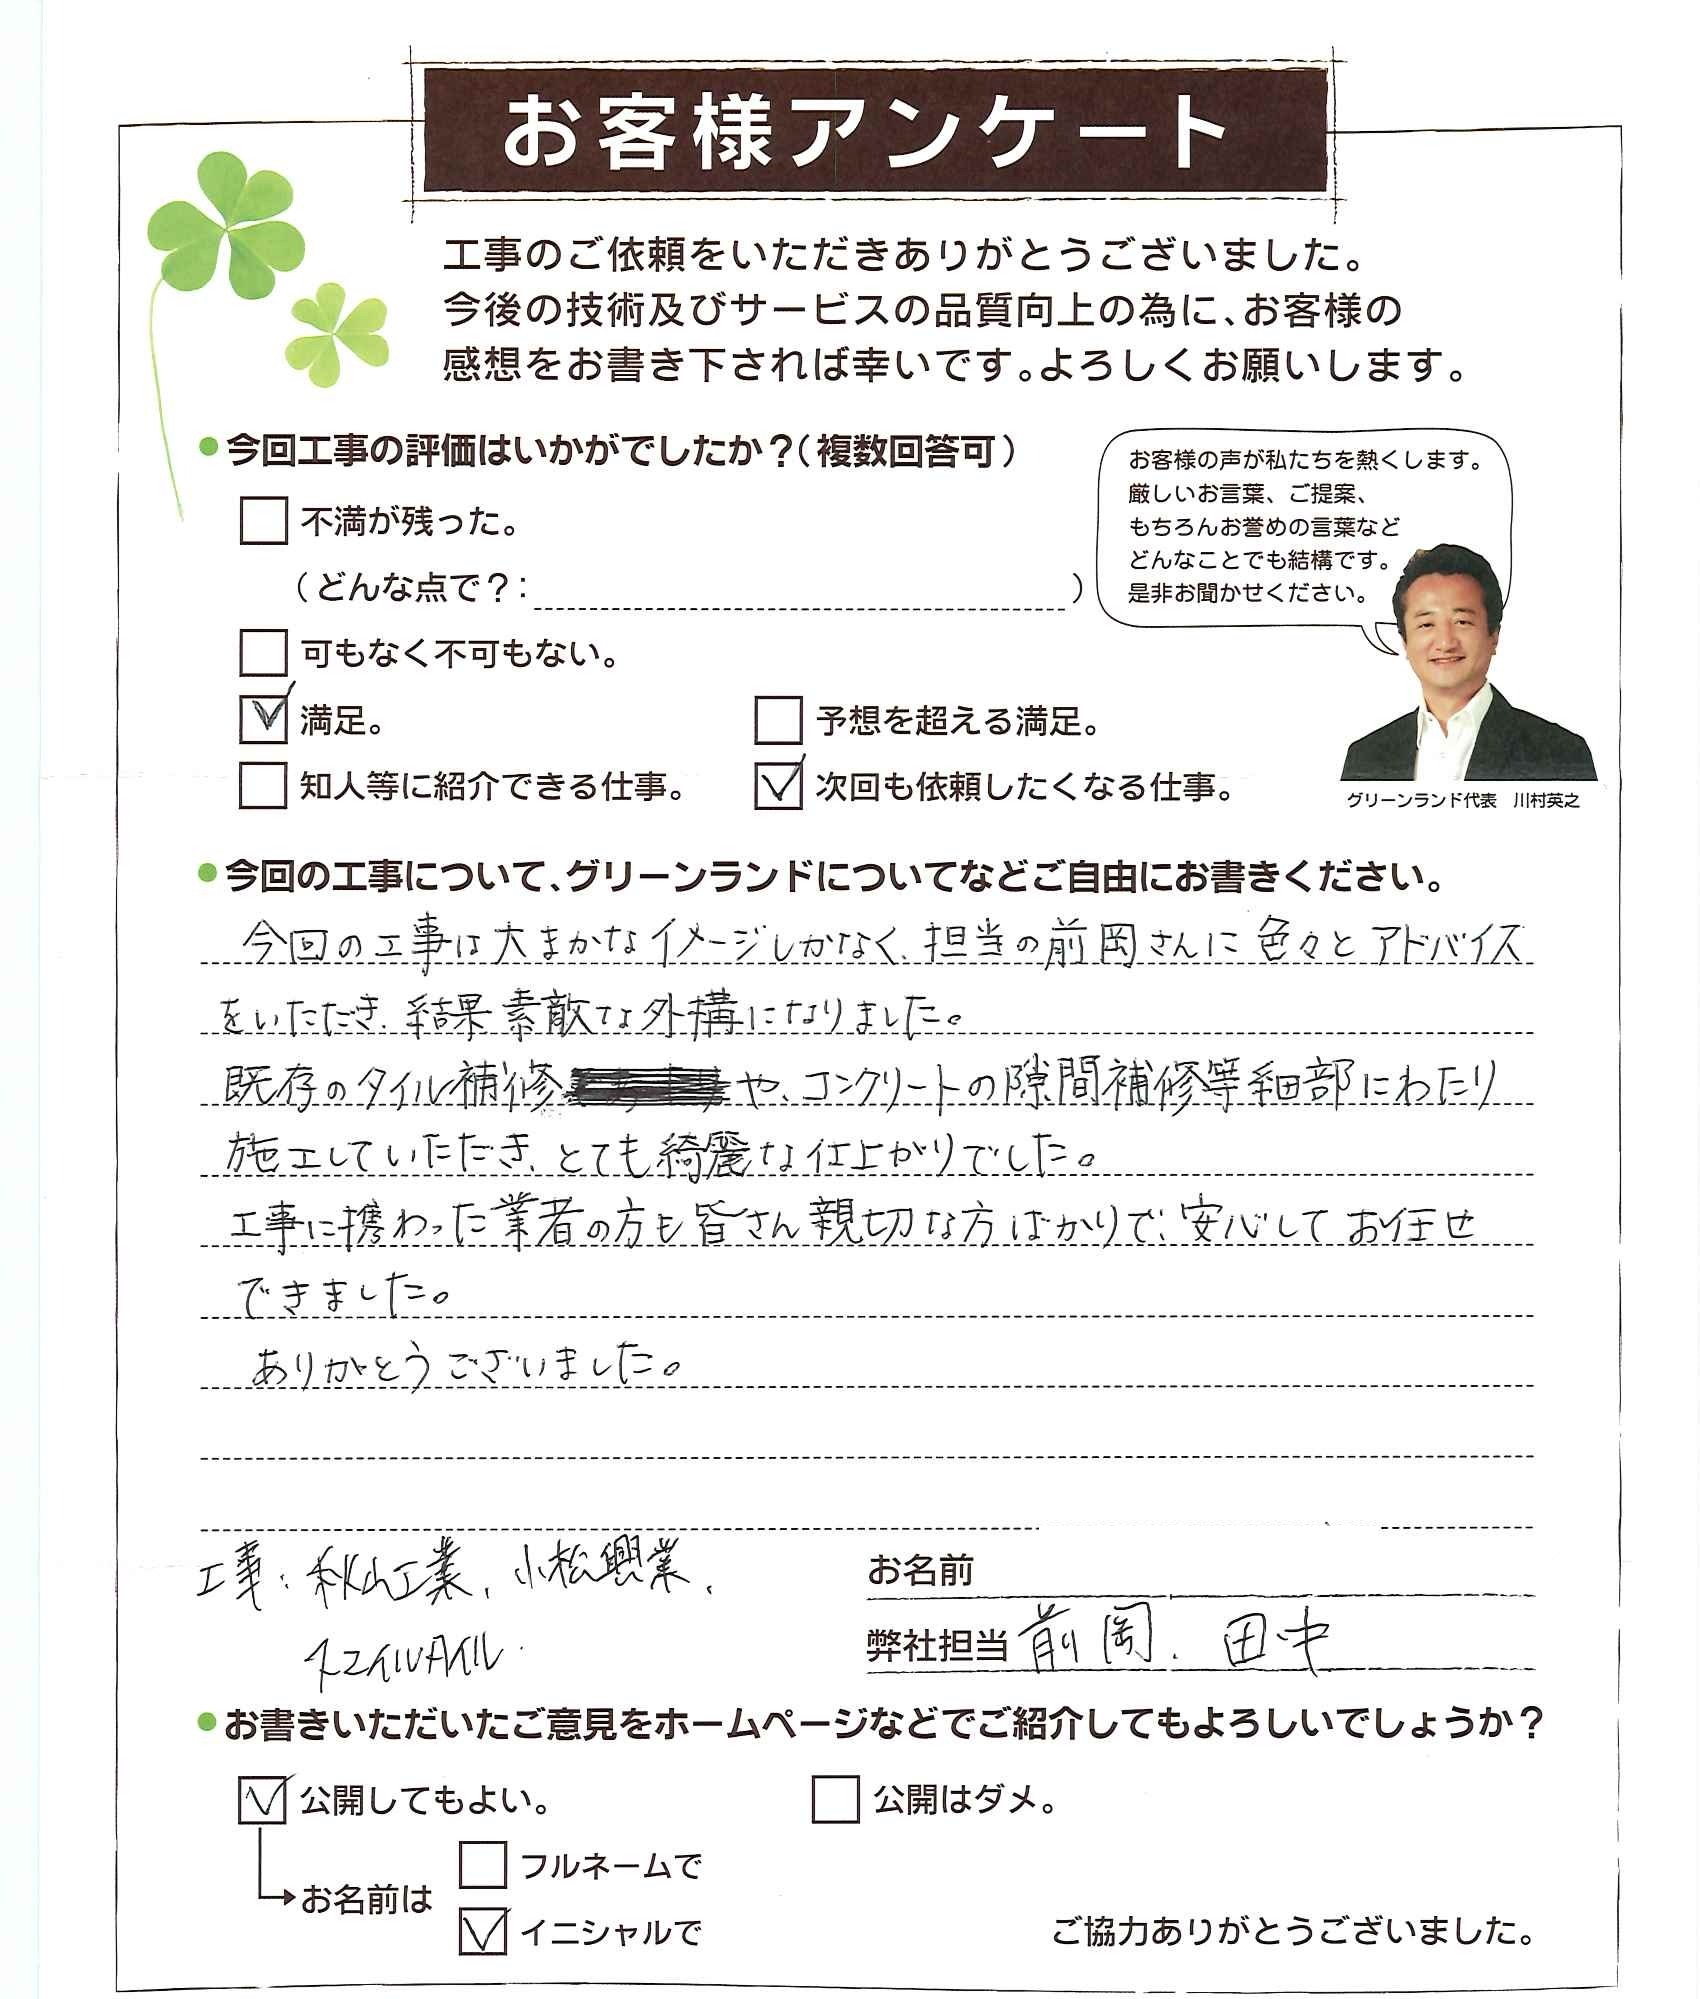 お客様アンケート
工事のご依頼をいただきありがとうございました。
今後の技術及びサービスの品質向上の為に、お客様の
感想をお書き下されば幸いです。よろしくお願いします。
●今回工事の評価はいかがでしたか？（複数回答可）
不満が残った。
（どんな点で？：　　　）
可もなく不可もない。
満足。
予想を超える満足。
知人等に紹介できる仕事。
次回も依頼したくなる仕事。
お客様の声が私たちを熱くします。
厳しいお言葉、ご提案、
もちろんお誉めの言葉など
どんなことでも結構です。
是非お聞かせください。
グリーンランド代表　川村英之
●今回の工事について、グリーンランドについてなどご自由にお書きください。
今回の工事は大まかなイメージしかなく、担当の前岡さんに色々とアドバイス
をいただき、結果素敵な外構になりました。
既存のタイル補修や、コンクリートの隙間補修等細部にわたり
施工していただき、とても綺麗な仕上がりでした。
工事に携わった業者の方も皆さん親切な方ばかりで、安心してお任せ
できました。
ありがとうございました。
工事：秋山工業、小松興業、
タイル
お名前
弊社担当 前岡、田中
●お書きいただいたご意見をホームページなどでご紹介してもよろしいでしょうか？
公開してもよい。
公開はダメ。
お名前は
フルネームで
イニシャルで
ご協力ありがとうございました。